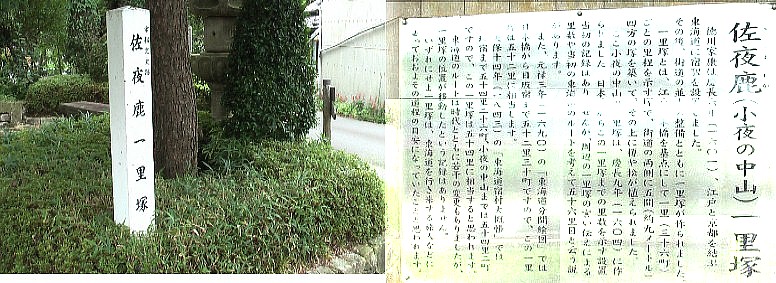 佐夜鹿一里塚
佐夜鹿(小夜の中山)一里塚
徳川家康は慶長六年(一六〇一)、江戸と京都を結ぶ
東海道に宿駅を設 ました。
その後、街道の 整備とともに一里塚が作られました。
一里塚とは、江 橋を基点にして一里(三十六町)
ごとの里程を示す塚で、街道の両側に五間(約九メートル)
四方の塚を築いて、その上に榎や松が植えられました。
ここ小夜の中山 里塚は、慶長九年(一六〇四)に作
られました。日本 らこの一里塚までの里数を示す設置
当初の記録はあり せんが、周辺の一里塚の言い伝えによる
里数や当初の東海 のルートを考えて五十六里目という説
があります。
また、元禄三年(一六九〇)の「東海道分間絵図」では
日本橋から日坂宿まで五十二里三十町ですので、この一里
は五十二里に相当します。
天保十四年(一八四三)の「東海道宿村大概帳」では
宿まで五十四里二十六町、小夜の中山までは五十四里三町
ですので、この一里塚は五十四里に相当すると思われます。
東海道のルートは時代とともに若干の変更もありましたが、
一里塚の位置が移動したという記録はありません。
いずれにせよ一里塚は、東海道を行き来する旅人などに
とっておおよその道程の目安になっていたことと思われます。